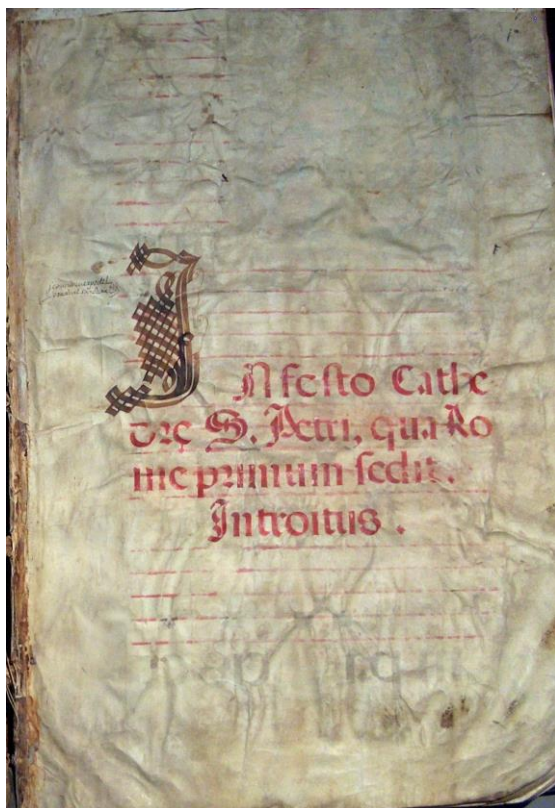 In festo Cathe
dre S. Petri, qua Ro
me primum sedit.
Introitus.